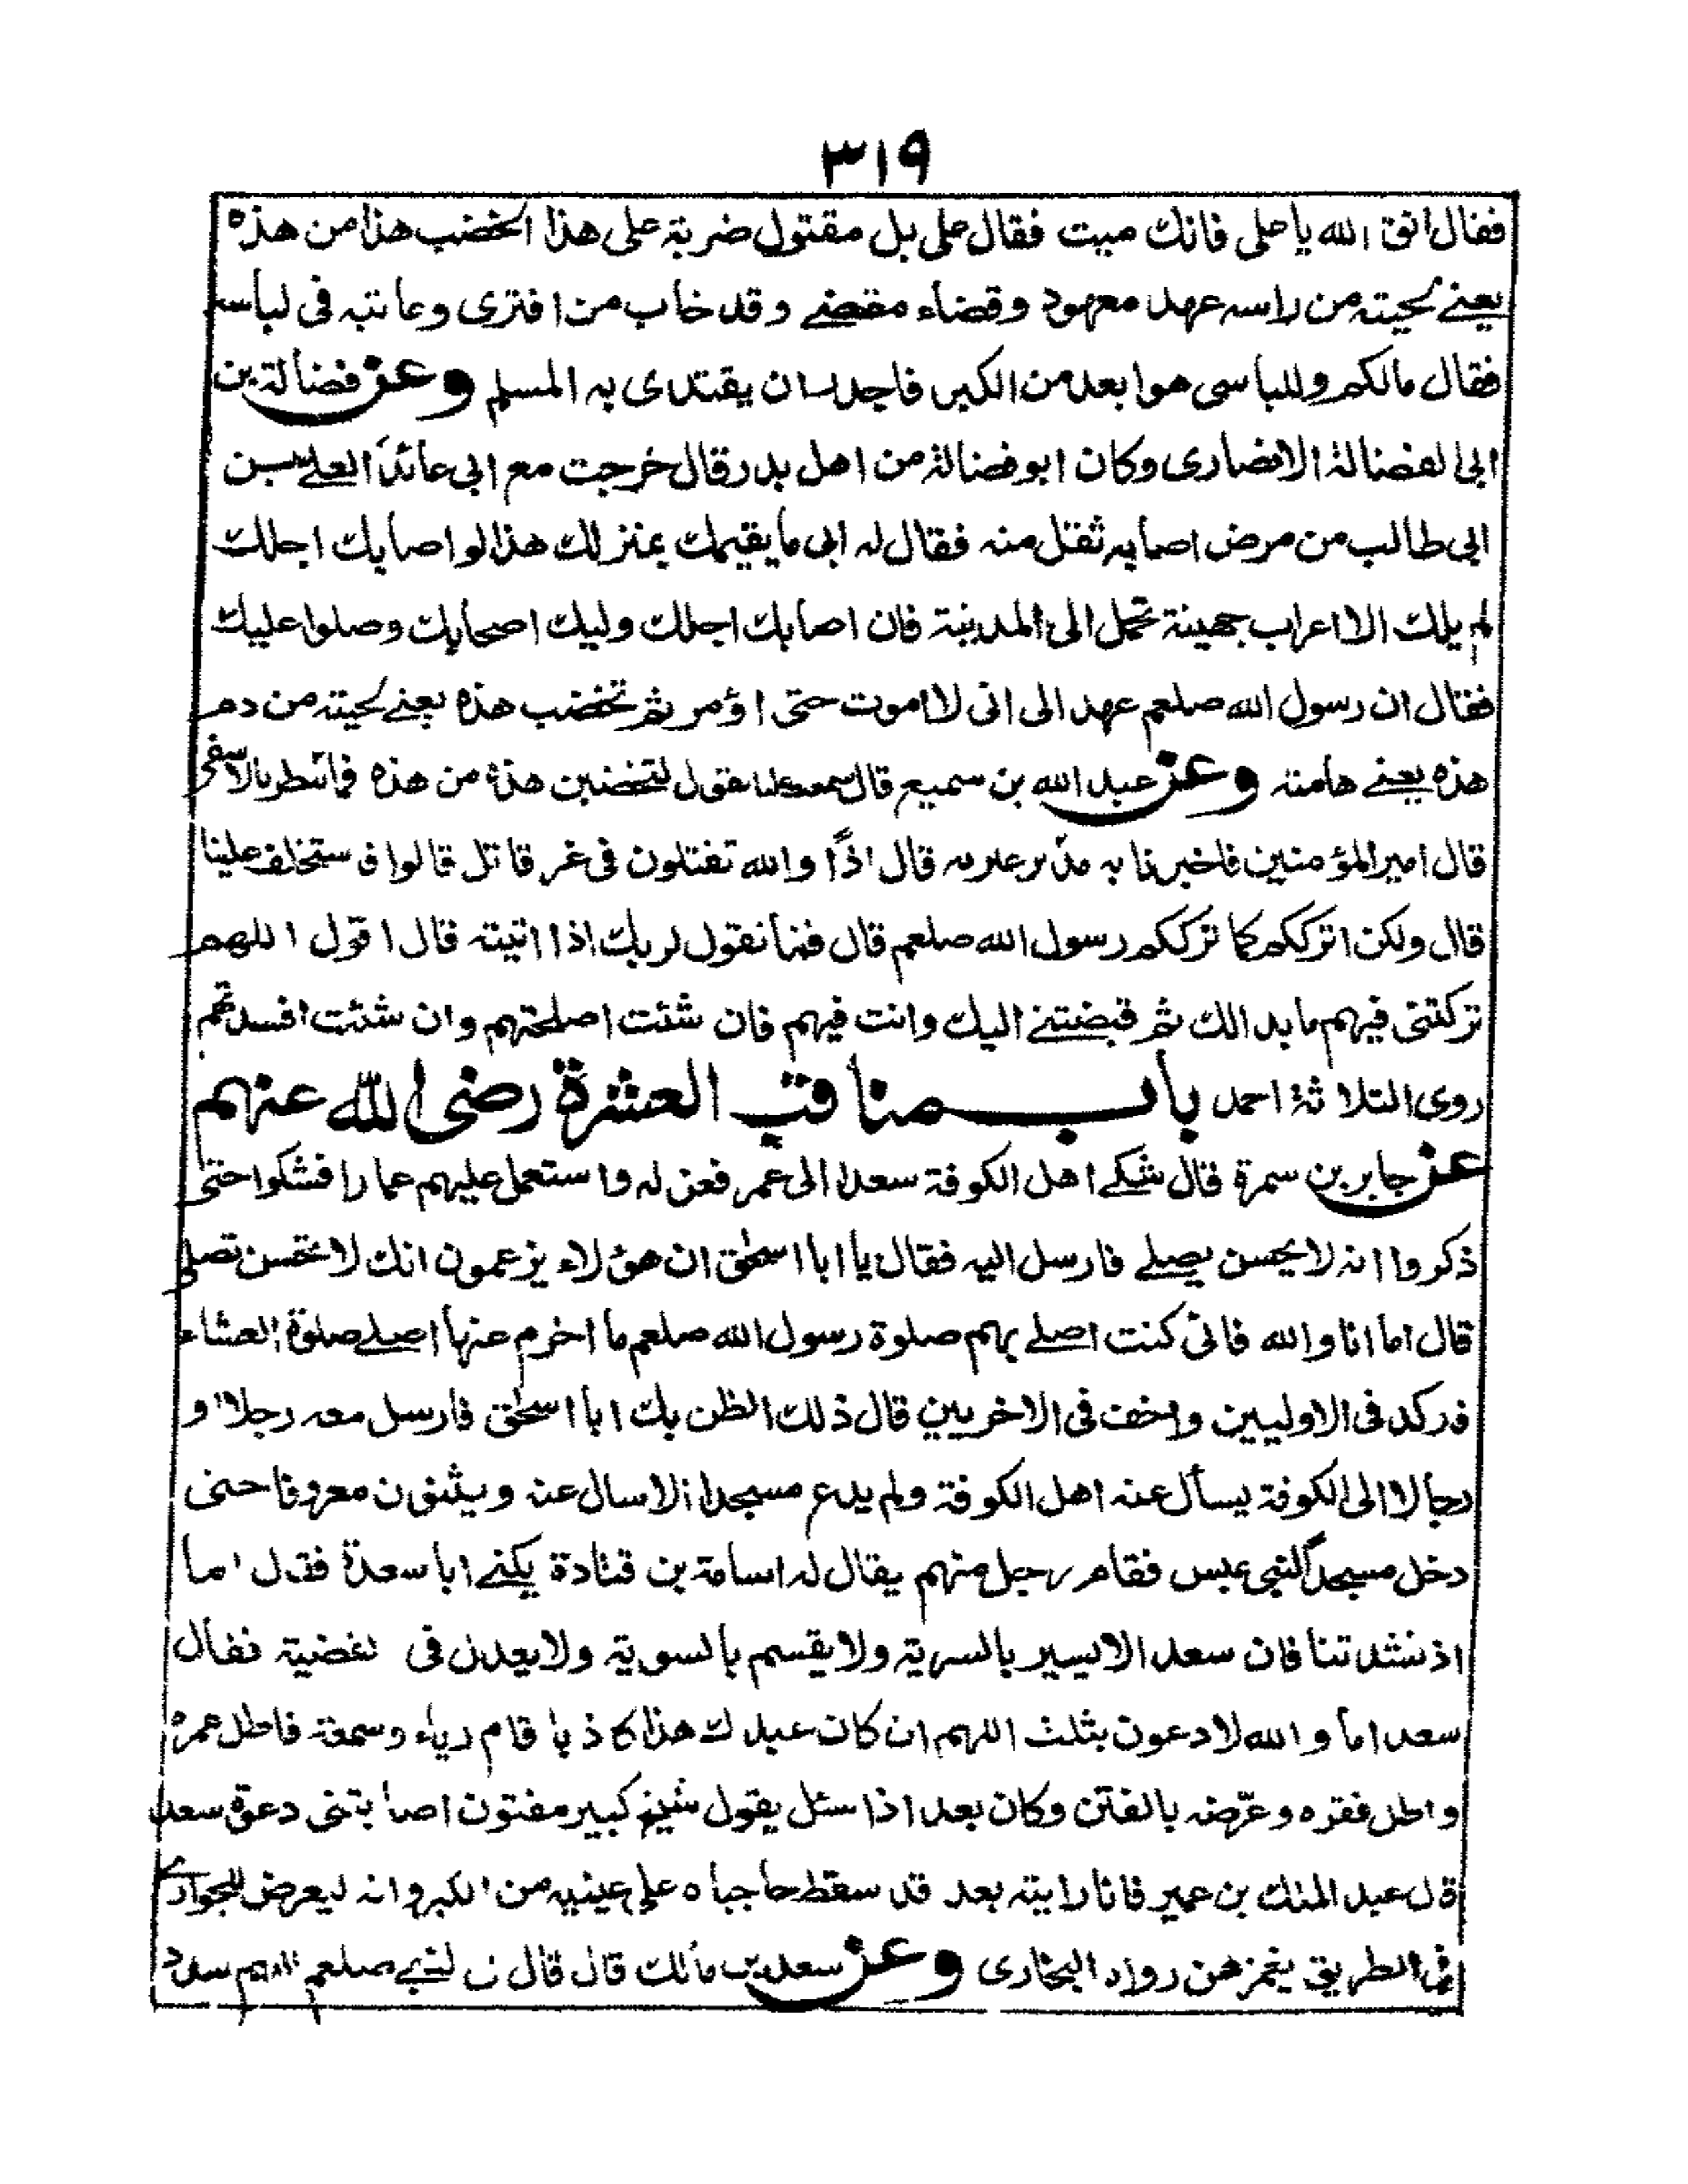 ٣١٩
فقال اتق الله يا على فانك ميت فقال على بل مقتول ضربة على هذا تخضب هذا من هذه
يعنے لحيته من راسه عهد معهود وقضاء مقضے وقد خاب من افترى وعاتبه فى لباسه
فقال مالكم وللباسى هو ابعد من الكبر فاجدر ان يقتدى به المسلم وعن فضالة بن
ابى لفضالة الانصارى وكان ابو فضالة من اهل بدر قال خرجت مع ابى عائدا لعلے بن
ابى طالب من مرض اصابه ثقل منه فقال له ابى ما يقيمك بمنزلك هذا لو اصابك اجلك
لم يلك الا اعراب جهينة تحمل الى المدينة فان اصابك اجلك وليك اصحابك وصلوا عليك
فقال ان رسول الله صلعم عهد الى انى لا اموت حتى اؤمر ثم تخضب هذه يعنے لحيته من دم
هذه يعنے هامته وعن عبد الله بن سميع قال سمعت عليا يقول لتخضبن هذه من هذه فما ينتظر بالاشقى
قال امير المؤمنين فاخبرنا به قال اذًا والله تقتلون فى غير قاتل قالوا فاستخلف علينا
قال ولكن اترككم كما ترككم رسول الله صلعم قال فما نقول لربك اذا اتيته قال اقول اللهم
تركتنى فيهم ما بدا لك ثم قبضتنے اليك وانت فيهم فان شئت اصلحتهم وان شئت افسدتهم
روى الثلاثة احمد باب مناقب العشرة رضى الله عنهم
عن جابر بن سمرة قال شكے اهل الكوفة سعدا الى عمر فعزله واستعمل عليهم عمارا فشكوا حتى
ذكروا انه لا يحسن يصلے فارسل اليه فقال يا ابا اسحٰق ان هؤلاء يزعمون انك لا تحسن تصلى
قال اما انا والله فانى كنت اصلے بهم صلوة رسول الله صلعم ما اخرم عنها اصلے صلوة العشاء
فاركد فى الاوليين واخف فى الاخريين قال ذلك الظن بك ابا اسحٰق فارسل معه رجلا و
رجالا الى الكوفة يسأل عنه اهل الكوفة ولم يدع مسجدا الا سال عنه ويثنون معروفا حتى
دخل مسجدا لبنى عبس فقام رجل منهم يقال له اسامة بن قتادة يكنے ابا سعدة فقال اما
اذ نشدتنا فان سعد الا يسير بالسرية ولا يقسم بالسوية ولا يعدل فى القضية فقال
سعد اما والله لادعون بثلث اللهم ان كان عبدك هذا كاذبا قام رياء وسمعة فاطل عمره
واطل فقره وعرضه بالفتن وكان بعد اذا سئل يقول شيخ كبير مفتون اصابتنى دعوة سعد
قال عبد الملك بن عمير فانا رايته بعد قد سقط حاجباه على عينيه من الكبر وانه ليعرض للجوارى
فى الطريق يغمزهن رواه البخارى وعن سعد بن مالك قال قال لى النبے صلعم اللهم سدد